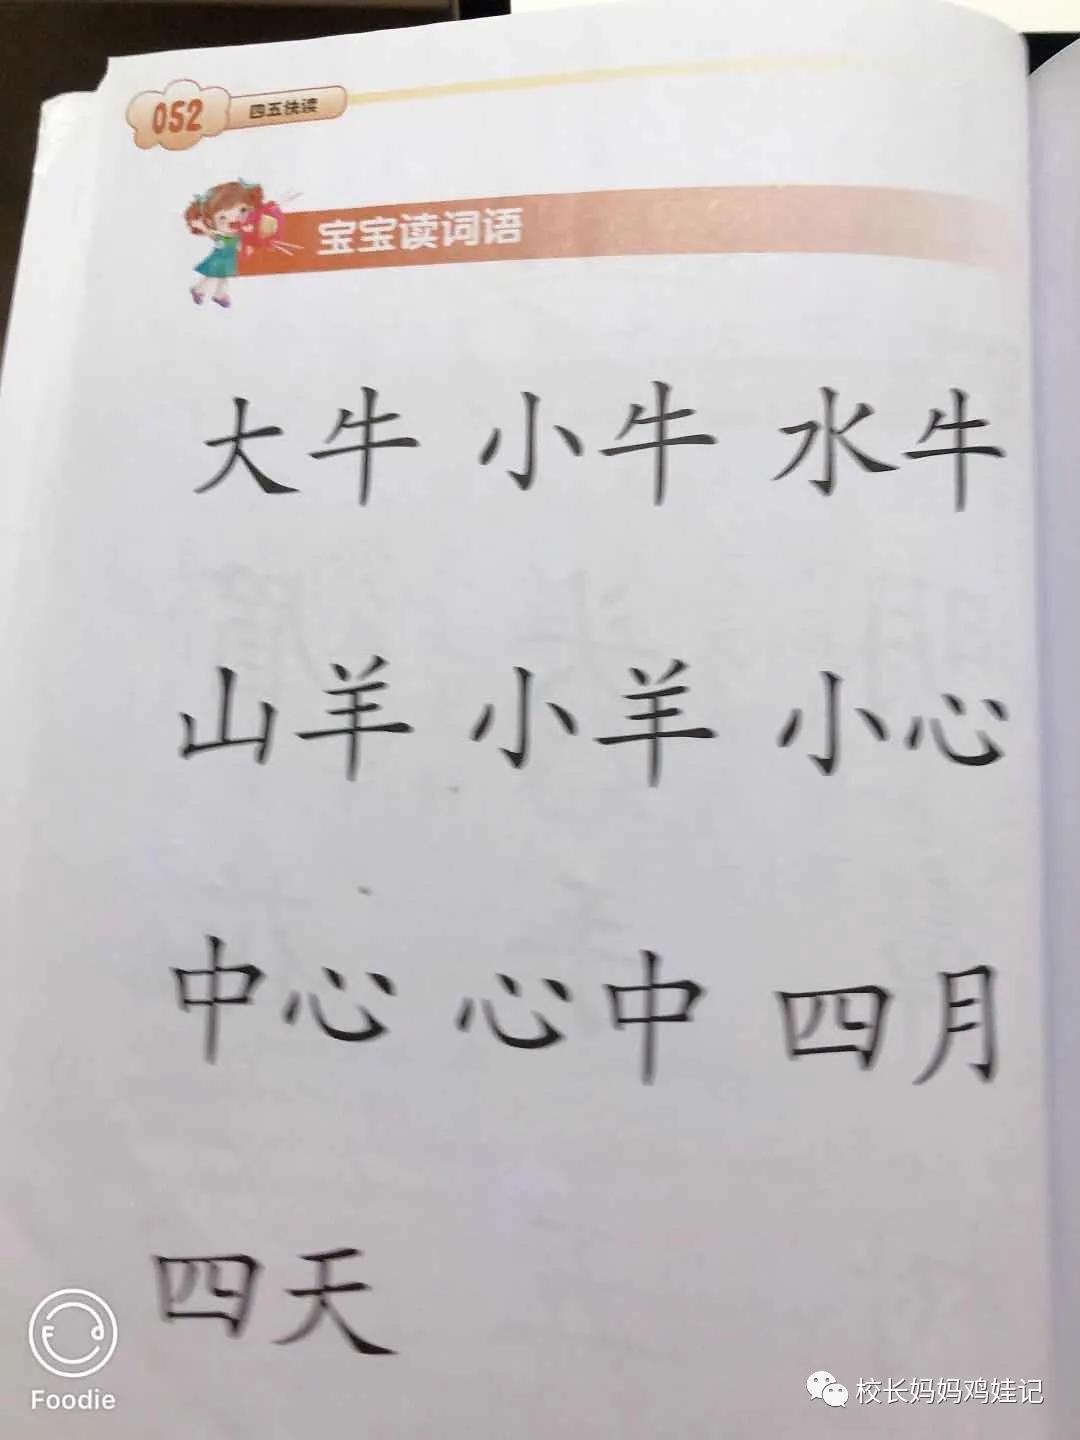 052 四五快读
宝宝读词语
大牛 小牛 水牛
山羊 小羊 小心
中心 心中 四月
四天
Foodie
校长妈妈鸡娃记